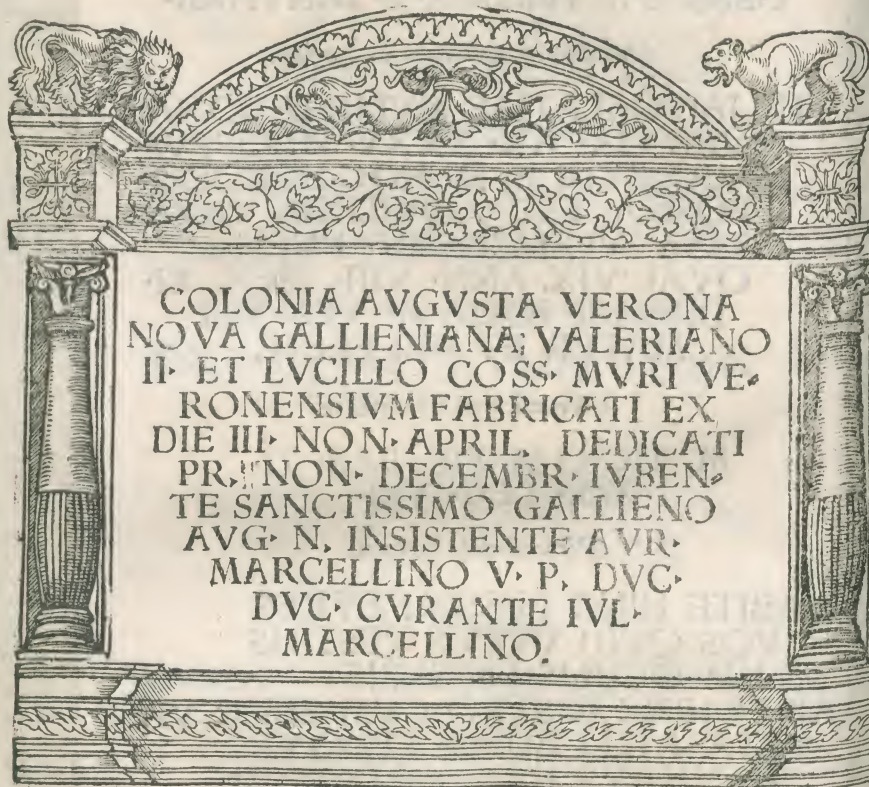 COLONIA AVGVSTA VERONA
NOVA GALLIENIANA; VALERIANO
II· ET LVCILLO COSS· MVRI VE-
RONENSIVM FABRICATI EX
DIE III· NON· APRIL. DEDICATI
PR. NON· DECEMBR· IVBEN-
TE SANCTISSIMO GALLIENO
AVG· N. INSISTENTE AVR·
MARCELLINO V· P. DVC·
DVC· CVRANTE IVL·
MARCELLINO.